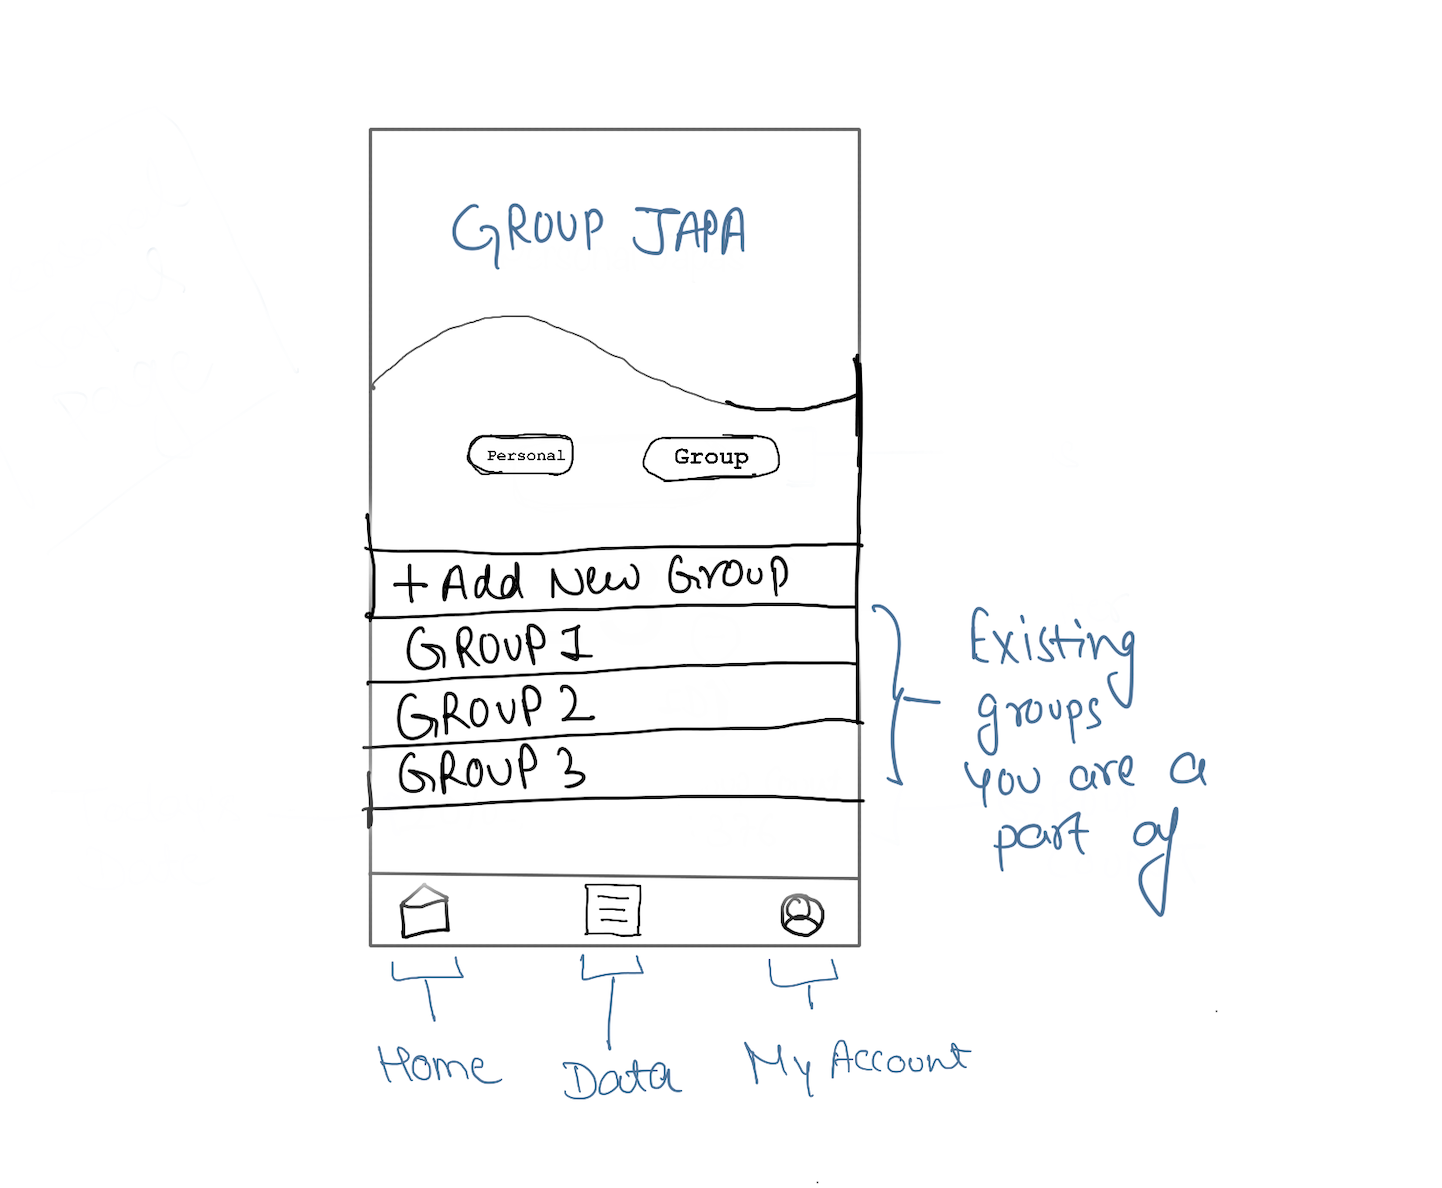 GROUP JAPA
Personal
Group
+ Add New Group
GROUP 1
GROUP 2
GROUP 3
Existing
groups
you are a
part of
Home
Data
My Account